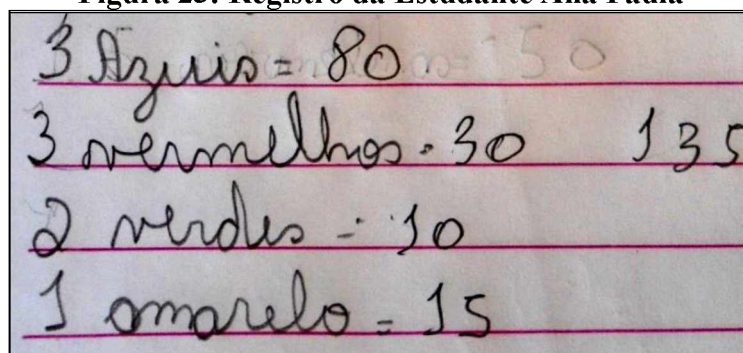 Figura 23: Registro da Estudante Ana Paula
3 Azuis = 80
3 vermelhos = 30 135
2 verdes = 10
1 amarelo = 15